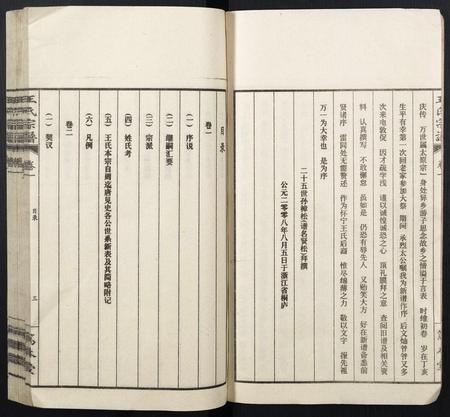 庆传 万世属太原宗 身处异乡游子思念故乡之情溢于言表 时维初卷 岁在丁亥
生平有幸第一次回老家参加大祭 期间 承烈太公嘱我为新谱作序 后文灿曾曾又多
次来电敦促 因才疏学浅 谨以诚惶诚恐之心 顶礼膜拜之意 查阅旧谱及相关资
料 认真撰写 不敢懈怠 虽如是 仍恐有辱先人 又贻笑大方 好在新谱备悉前
贤诸序 雷同处无需赘述 作为怀宁王氏后裔 惟尽绵薄之力 敬以文字 报先祖
万一为大幸也 是为序
二十五世孙 松 谱名贤松 拜撰
公元二零零八年八月五日于浙江省桐庐
王氏宗谱
卷
目录
卷一
(一)序说
(二)继嗣汇要
(三)宗派
(四)姓氏考
(五)王氏本宗自周迄唐见史各公世系新表及其简略附记
(六)凡例
卷二
(一)契议
王氏宗谱
卷
目录
三